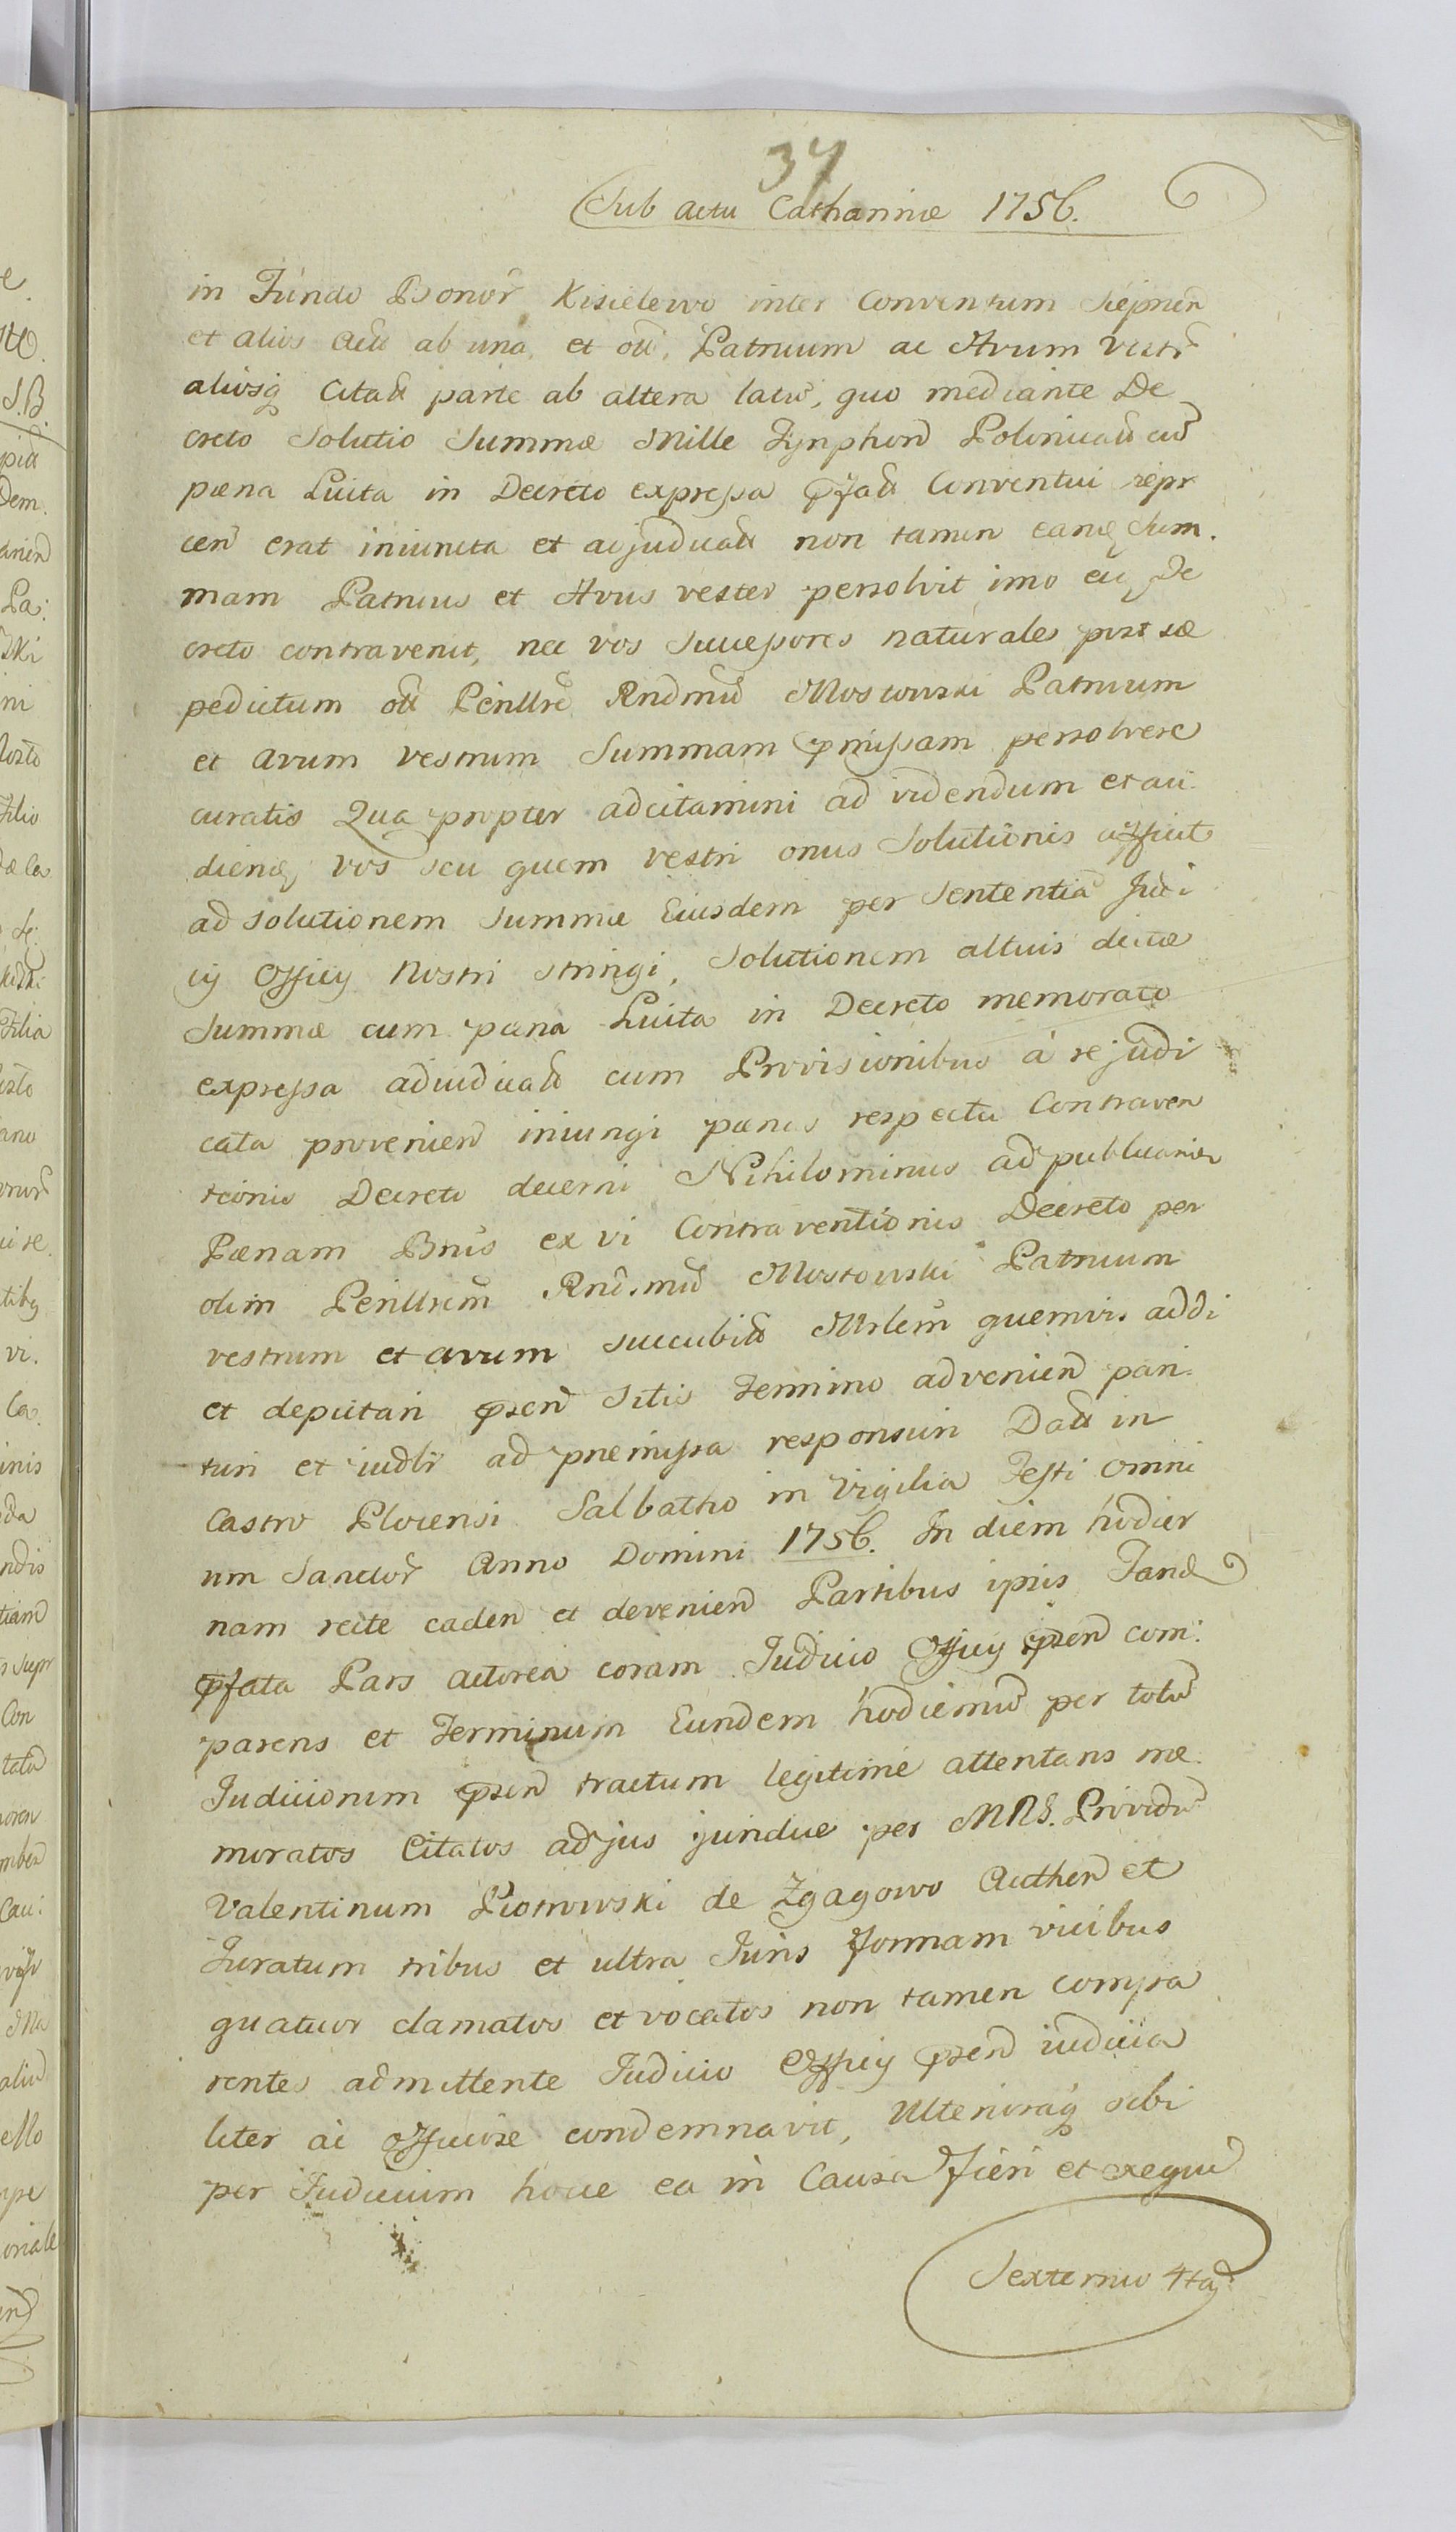 37
Sub actu Catharinæ 1756.
in Fundo Bonor̃ Kisielewo inter Conventum Siepneñ
et alios Actt ab una, et ott, Patruum ac Avum vestr̃
aliosq Citatt parte ab altera latũ, quo mediante De
creto Solutio Summæ Mille Tynphonũ Polonicatt cũ
pæna Luita in Decreto expressa pfatt Conventui repr
ceñ erat iniuncta et adjudicatt non tamen eandẽ Sum.
mam Patruus et Avus vester persolvit imo eidẽ De
creto contravenit, nec vos Successores naturales post sæ
pedictum ott Perillrẽ Rndmũ Mostowski Patruum
et avum vestrum Summam pmissam persolvere
curatis Qua propter adcitamini ad videndum et au
diendũ vos seu quem vestri onus Solutionis afficit
ad solutionem Summæ Eiusdem per Sententiã Judi
cij Officij Nostri stringi, Solutionem altius dictæ
Summæ cum pæna Luita in Decreto memorato
expressa adiudicatt cum Provisionibus à re judi
cata provenieñ iniungi pænas respectu Contraven
tionis Decreto decerni Nihilominus ad publicandã
Pænam Bnis ex vi Contraventionis Decreto per
olim Perillrem Rndmũ Mostowski Patruum
vestrum et avum succubitt Mrlem quemvis addi
et deputari pseñ Sitis Termino advenieñ pari.
turi et iudlr ad præmissa responsuri Datt in
Castro Plocensi Salbatho in Vigilia Festi Omni
um Sanctor̃ Anno Domini 1756. In diem hodier
nam recte cadeñ et devenieñ Partibus ipsis Tandẽ
pfata Pars actorea coram Judicio Officij pseñ com.
parens et Terminum Eundem hodiernũ per totũ
Judiciorum pseñ tractum legitime attentans me.
moratos Citatos ad jus juridice per MRS. Providũ
Valentinum Piotrowski de Zgagowo Autheñ et
Juratum tribus et ultra Juris formam vicibus
quatuor clamatos et vocatos non tamen compa
rentes admittente Judicio Officij pseñ iudicia
liter ac officiose condemnavit, Ulterioraq sibi
per Judicium hocce ea in Causa fieri et exequi
Sexternio 4to